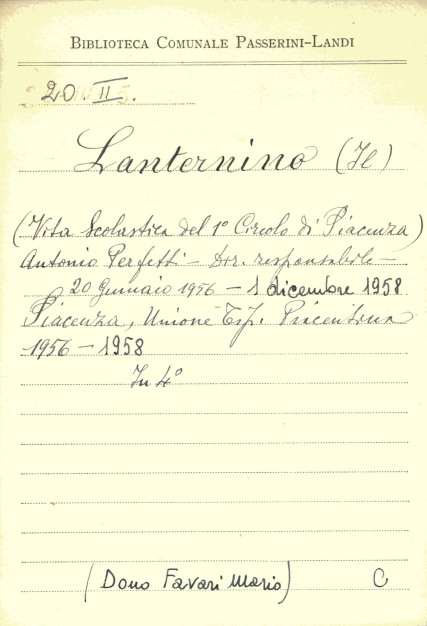 BIBLIOTECA COMUNALE PASSERINI-LANDI
20.II.
Lanternino (Il)
(Vita Scolastica del 1° Circolo di Piacenza)
Antonio Perfetti - Dir. responsabile -
20 Gennaio 1956 - 1 dicembre 1958
Piacenza, Unione Tip. Piacentina
1956 - 1958
In 4°
(Dono Favari Mario) C